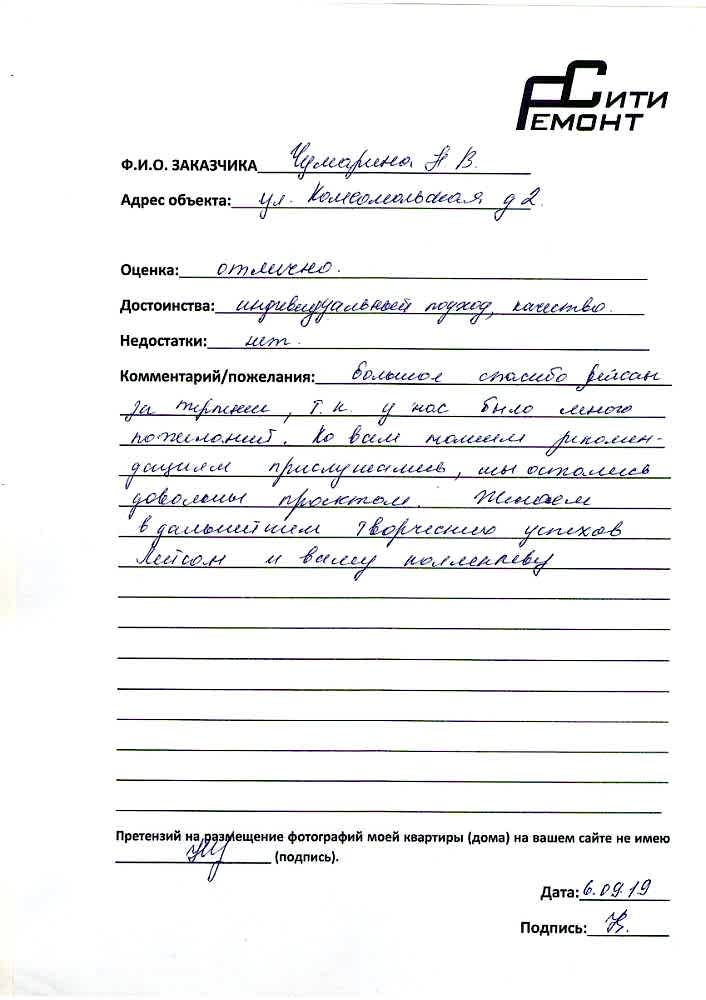 Сити
Ремонт
Ф.И.О. ЗАКАЗЧИКА Чумарина Н В.
Адрес объекта: ул. Комсомольская д 2.
Оценка: отлично.
Достоинства: индивидуальный подход, качество.
Недостатки: нет.
Комментарий/пожелания: большое спасибо Лейсан
за терпение, т.к. у нас было много
пожеланий. Ко всем вашим рекомен-
дациям прислушались, мы остались
довольны проектом. Желаем
в дальнейшем творческих успехов
Лейсан и всему коллективу
Претензий на размещение фотографий моей квартиры (дома) на вашем сайте не имею
(подпись).
Дата: 6.09.19
Подпись: